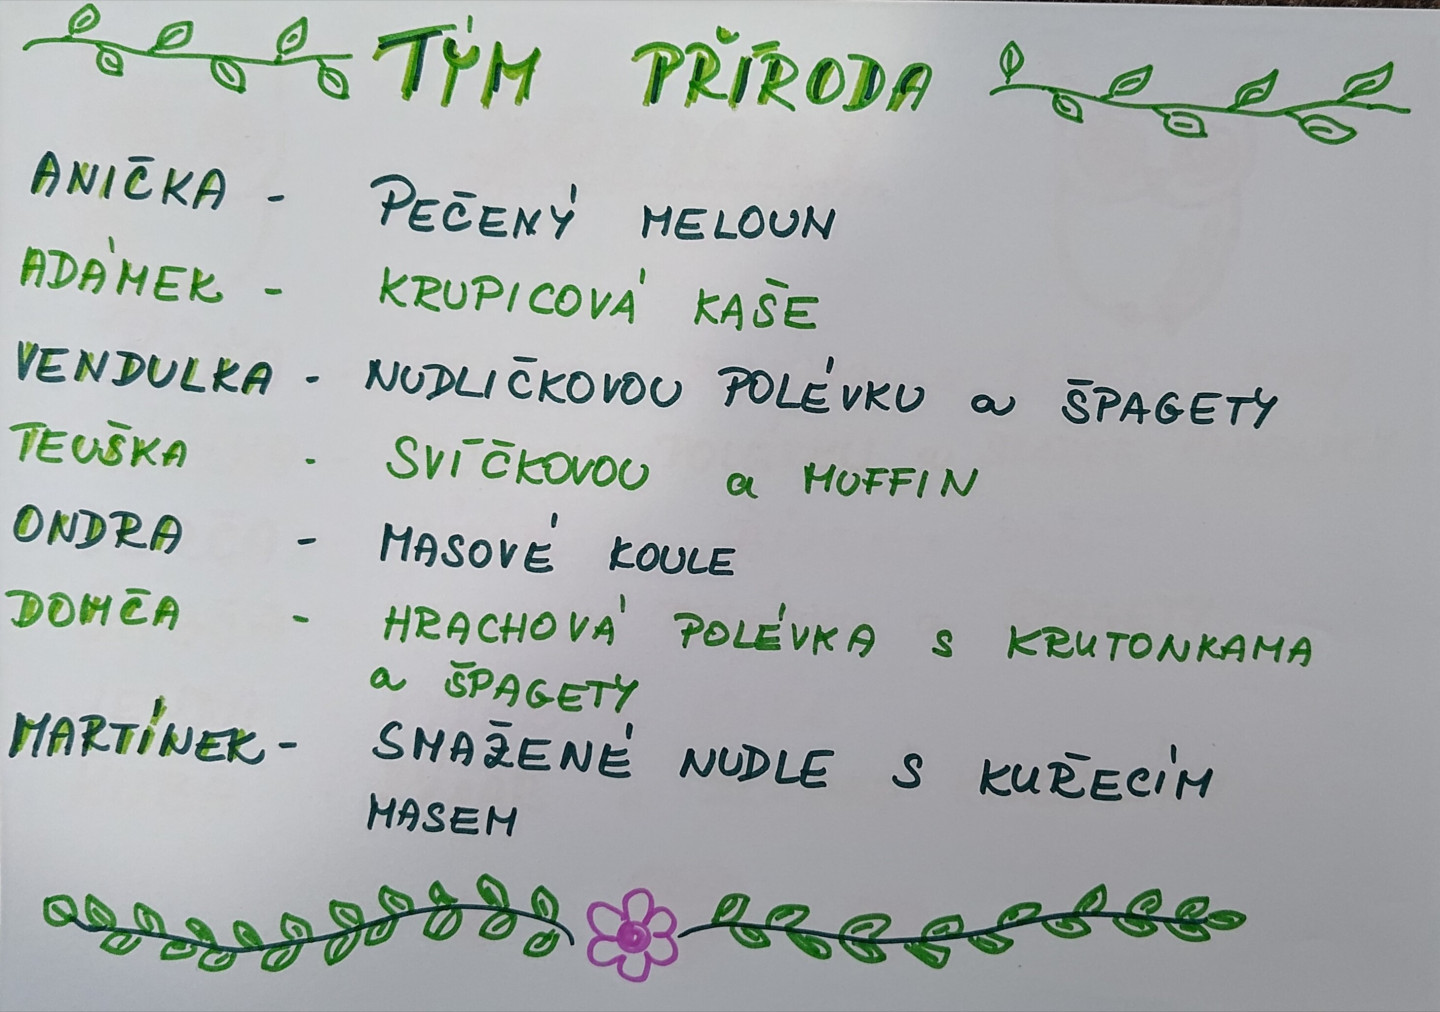 TÝM PŘÍRODA
ANIČKA - PEČENÝ MELOUN
ADÁMEK - KRUPICOVÁ KAŠE
VENDULKA - NUDLIČKOVOU POLÉVKU a ŠPAGETY
TEUŠKA - SVÍČKOVOU a MUFFIN
ONDRA - MASOVÉ KOULE
DOMČA - HRACHOVÁ POLÉVKA S KRUTONKAMA
a ŠPAGETY
MARTÍNEK - SMAŽENÉ NUDLE S KUŘECÍM
MASEM